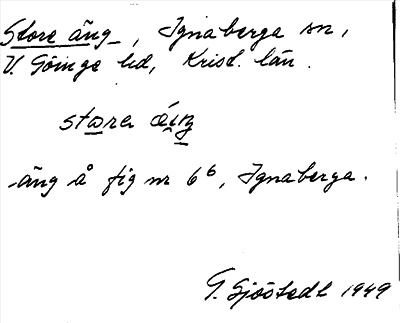 Store äng, Ignaberga sn,
V. Göinge hd, Krist. län.
äng å fig nr 6⁶, Ignaberga.
G. Sjöstedt 1949